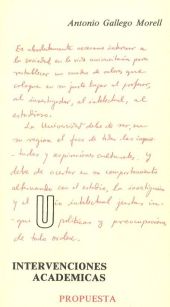 Antonio Gallego Morell
Es absolutamente necesario interesar a
la sociedad en la vida universitaria para
restablecer un cuadro de valores que
coloque en su justo lugar al profesor,
al investigador, al intelectual, al
estudioso.
La Universidad debe de ser, en
su region el foco de todas las inquie-
tudes y aspiraciones culturales, y
debe de orientar en su comportamiento
alternando con el estudio, la investigación
y el intelectual
que políticas y preocupaciones
de todo orden.
U
INTERVENCIONES
ACADEMICAS
PROPUESTA